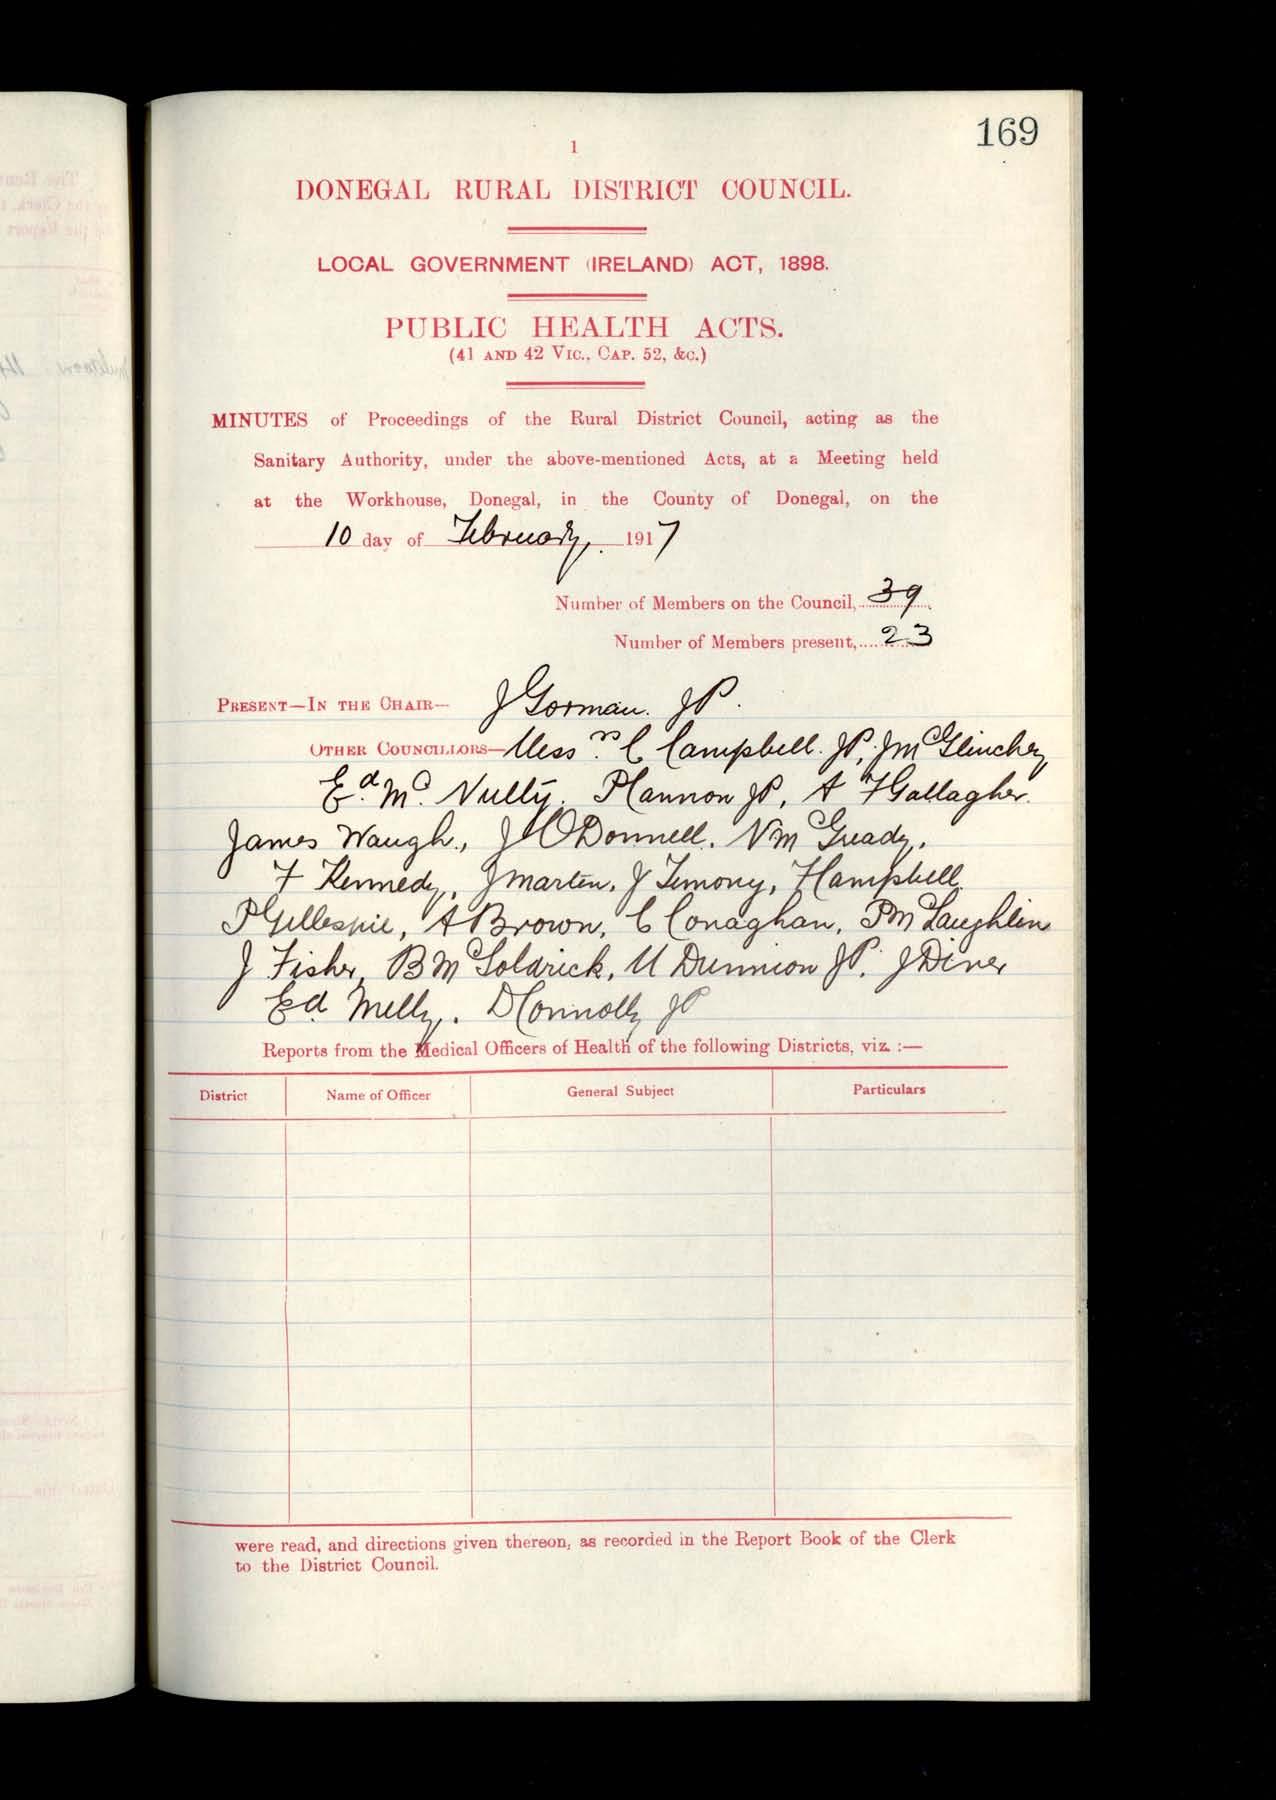 169
1
DONEGAL RURAL DISTRICT COUNCIL.
LOCAL GOVERNMENT (IRELAND) ACT, 1898.
PUBLIC HEALTH ACTS.
(41 AND 42 VIC., CAP. 52, &C.)
MINUTES of Proceedings of the Rural District Council, acting as the
Sanitary Authority, under the above-mentioned Acts, at a Meeting held
at the Workhouse, Donegal, in the County of Donegal, on the
10 day of February, 1917
Number of Members on the Council, 39
Number of Members present, 23
PRESENT—IN THE CHAIR— J Gorman. JP.
OTHER COUNCILLORS—Messrs. C Campbell. JP, J McGlinchey
Ed. Mc. Nulty. P Cannon JP, A F Gallagher.
James Waugh., J O'Donnell. N McGready,
F Kennedy, J Martin, J Timony, F Campbell
P Gillespie, A Brown, C Conaghan, P McLaughlin
J Fisher, B McGoldrick, M Dunnion JP. J Diver
Ed. Melly. D Connolly JP
Reports from the Medical Officers of Health of the following Districts, viz. :—
District Name of Officer General Subject Particulars
were read, and directions given thereon, as recorded in the Report Book of the Clerk
to the District Council.